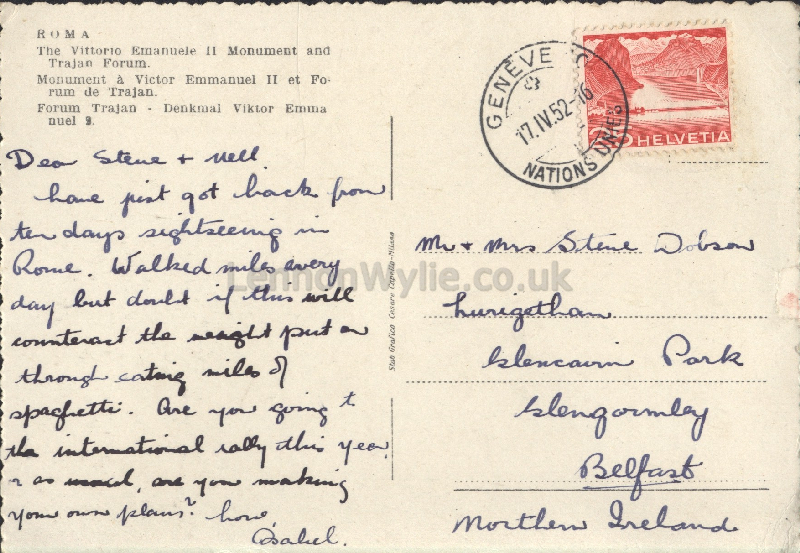 ROMA
The Vittorio Emanuele II Monument and
Trajan Forum.
Monument à Victor Emmanuel II et Fo-
rum de Trajan.
Forum Trajan - Denkmal Viktor Emma
nuel 2.
Dear Steve + Nell.
have just got back from
ten days sightseeing in
Rome. Walked miles every
day but doubt if this will
counteract the weight put on
through eating miles of
spaghetti. Are you going to
the international rally this year
or as usual, are you making
your own plans? love,
Isabel.
Stab Grafico Cesare Capello-Milano
GENÈVE
17.IV.52-16
NATIONS UNIES
HELVETIA
Mr + Mrs Steve Dobson
LennonWylie.co.uk
Lurigethan
Glencairn Park
Glengormley
Belfast
Northern Ireland